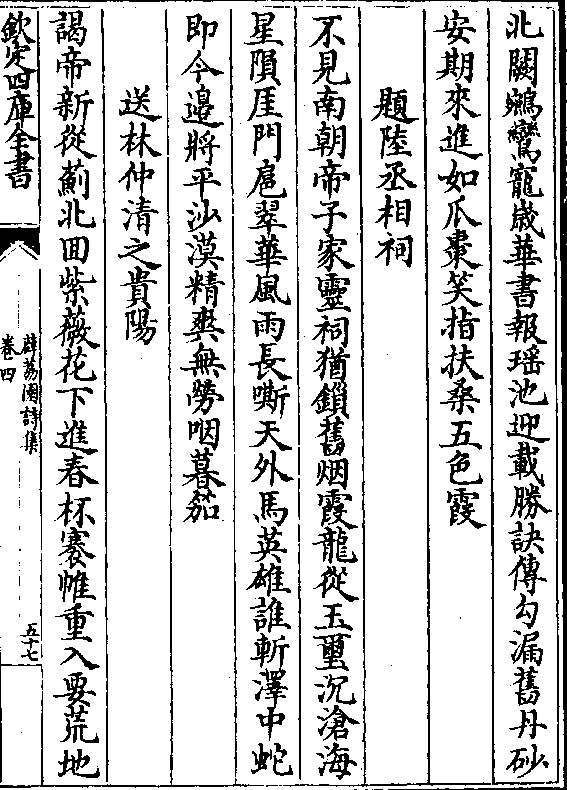 北闕鵷鸞寵歲華書報瑶池迎載勝訣傳勾漏舊丹砂
安期來進如瓜棗笑指扶桑五色霞
題陸丞相祠
不見南朝帝子家靈祠猶鎻舊烟霞龍從玉璽沉滄海
星隕厓門扈翠華風雨長嘶天外馬英雄誰斬澤中蛇
即今邉將平沙漠精爽無勞咽暮笳
送林仲清之貴陽
謁帝新從薊北回紫薇花下進春杯褰帷重入要荒地
欽定四庫全書
薜荔園詩集
卷四
五十七